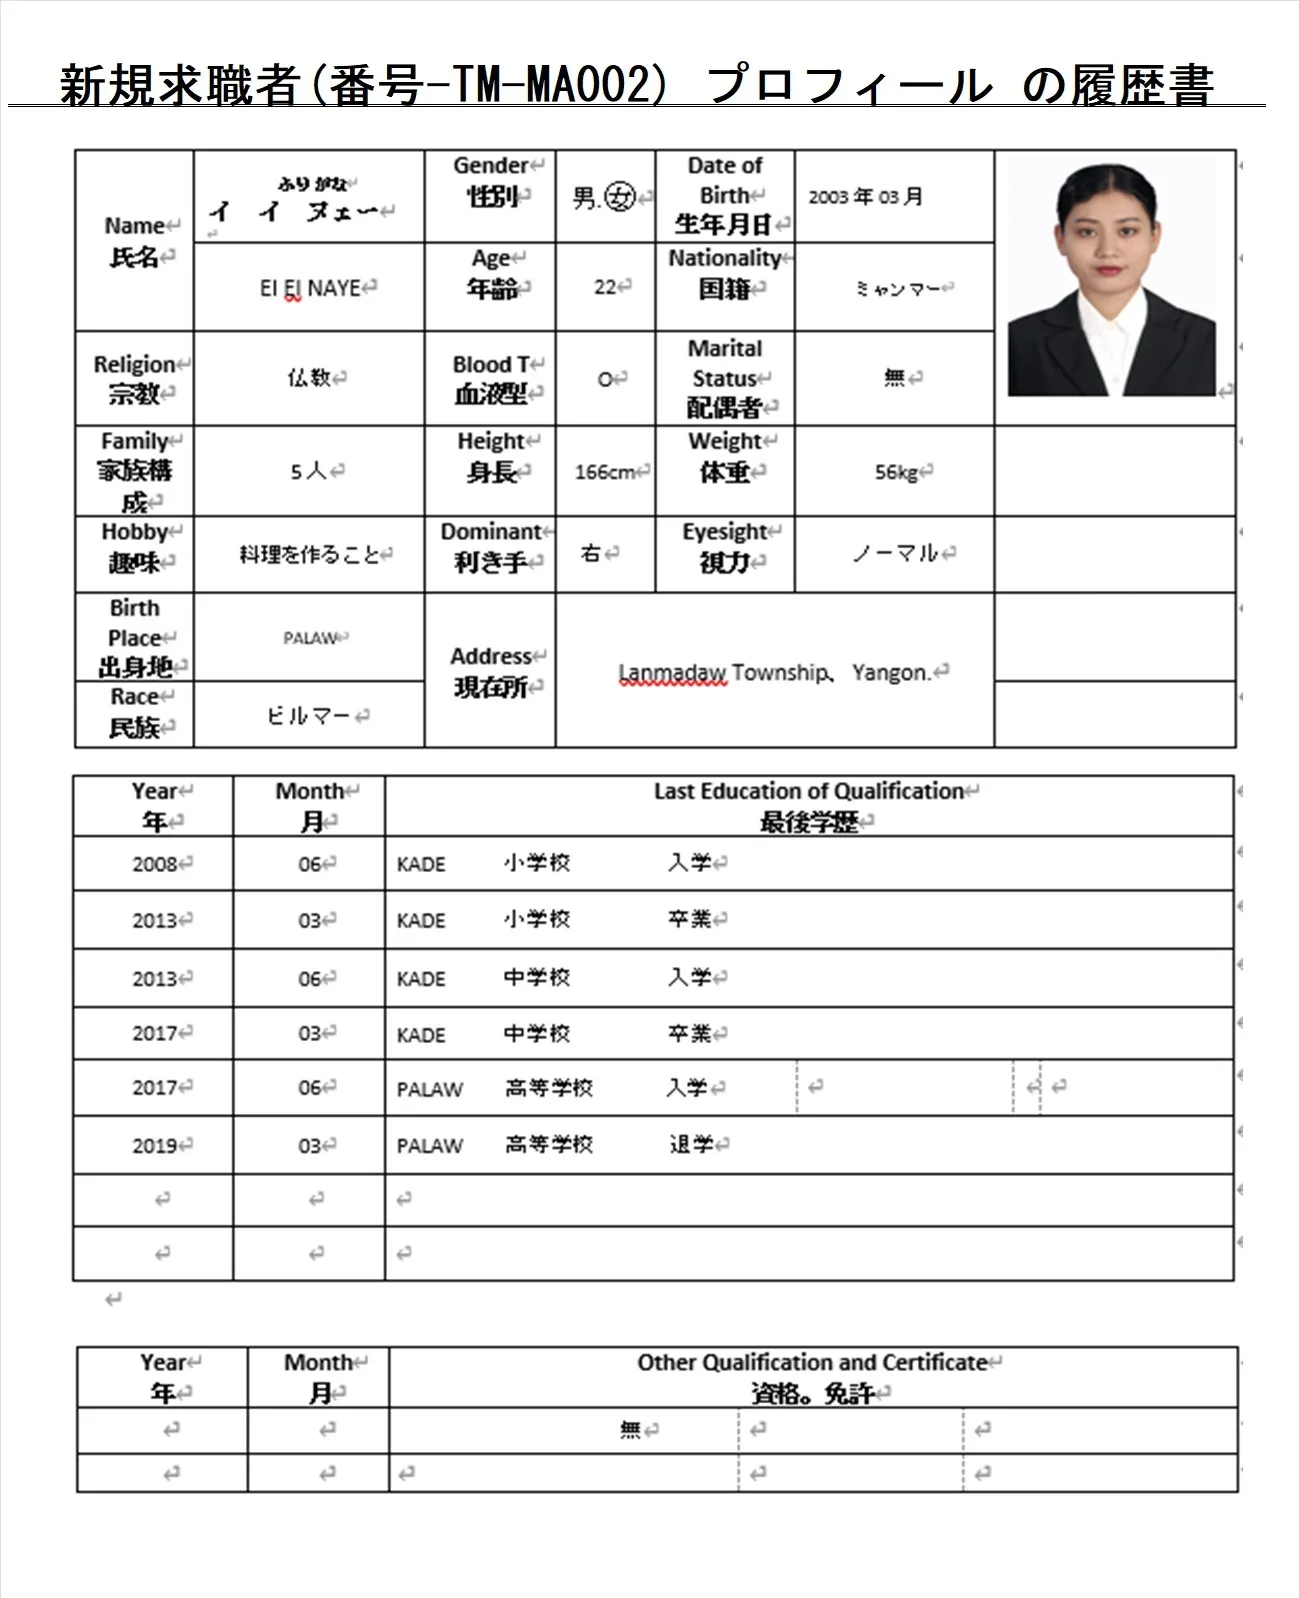 新規求職者(番号-TM-MA002) プロフィール の履歴書
Name
氏名
ふりがな
イ イ ヌェー
Gender
性別
男.女
Date of
Birth
生年月日
2003 年 03 月
EI EI NAYE
Age
年齢
22
Nationality
国籍
ミャンマー
Religion
宗教
仏教
Blood T
血液型
O
Marital
Status
配偶者
無
Family
家族構
成
5 人
Height
身長
166cm
Weight
体重
56kg
Hobby
趣味
料理を作ること
Dominant
利き手
右
Eyesight
視力
ノーマル
Birth
Place
出身地
PALAW
Address
現在所
Lanmadaw Township、 Yangon.
Race
民族
ビルマー
Year
年
Month
月
Last Education of Qualification
最後学歴
2008 06 KADE 小学校 入学
2013 03 KADE 小学校 卒業
2013 06 KADE 中学校 入学
2017 03 KADE 中学校 卒業
2017 06 PALAW 高等学校 入学
2019 03 PALAW 高等学校 退学
Year
年
Month
月
Other Qualification and Certificate
資格。免許
無